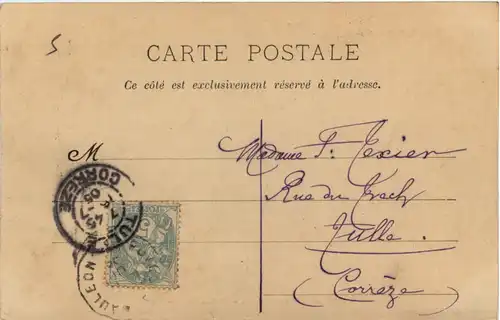 5
CARTE POSTALE
Ce côté est exclusivement réservé à l'adresse.
M
Madame F. Texier
Rue du Trech
Tulle
Corrèze
TULLE
CORRÈZE
7 45